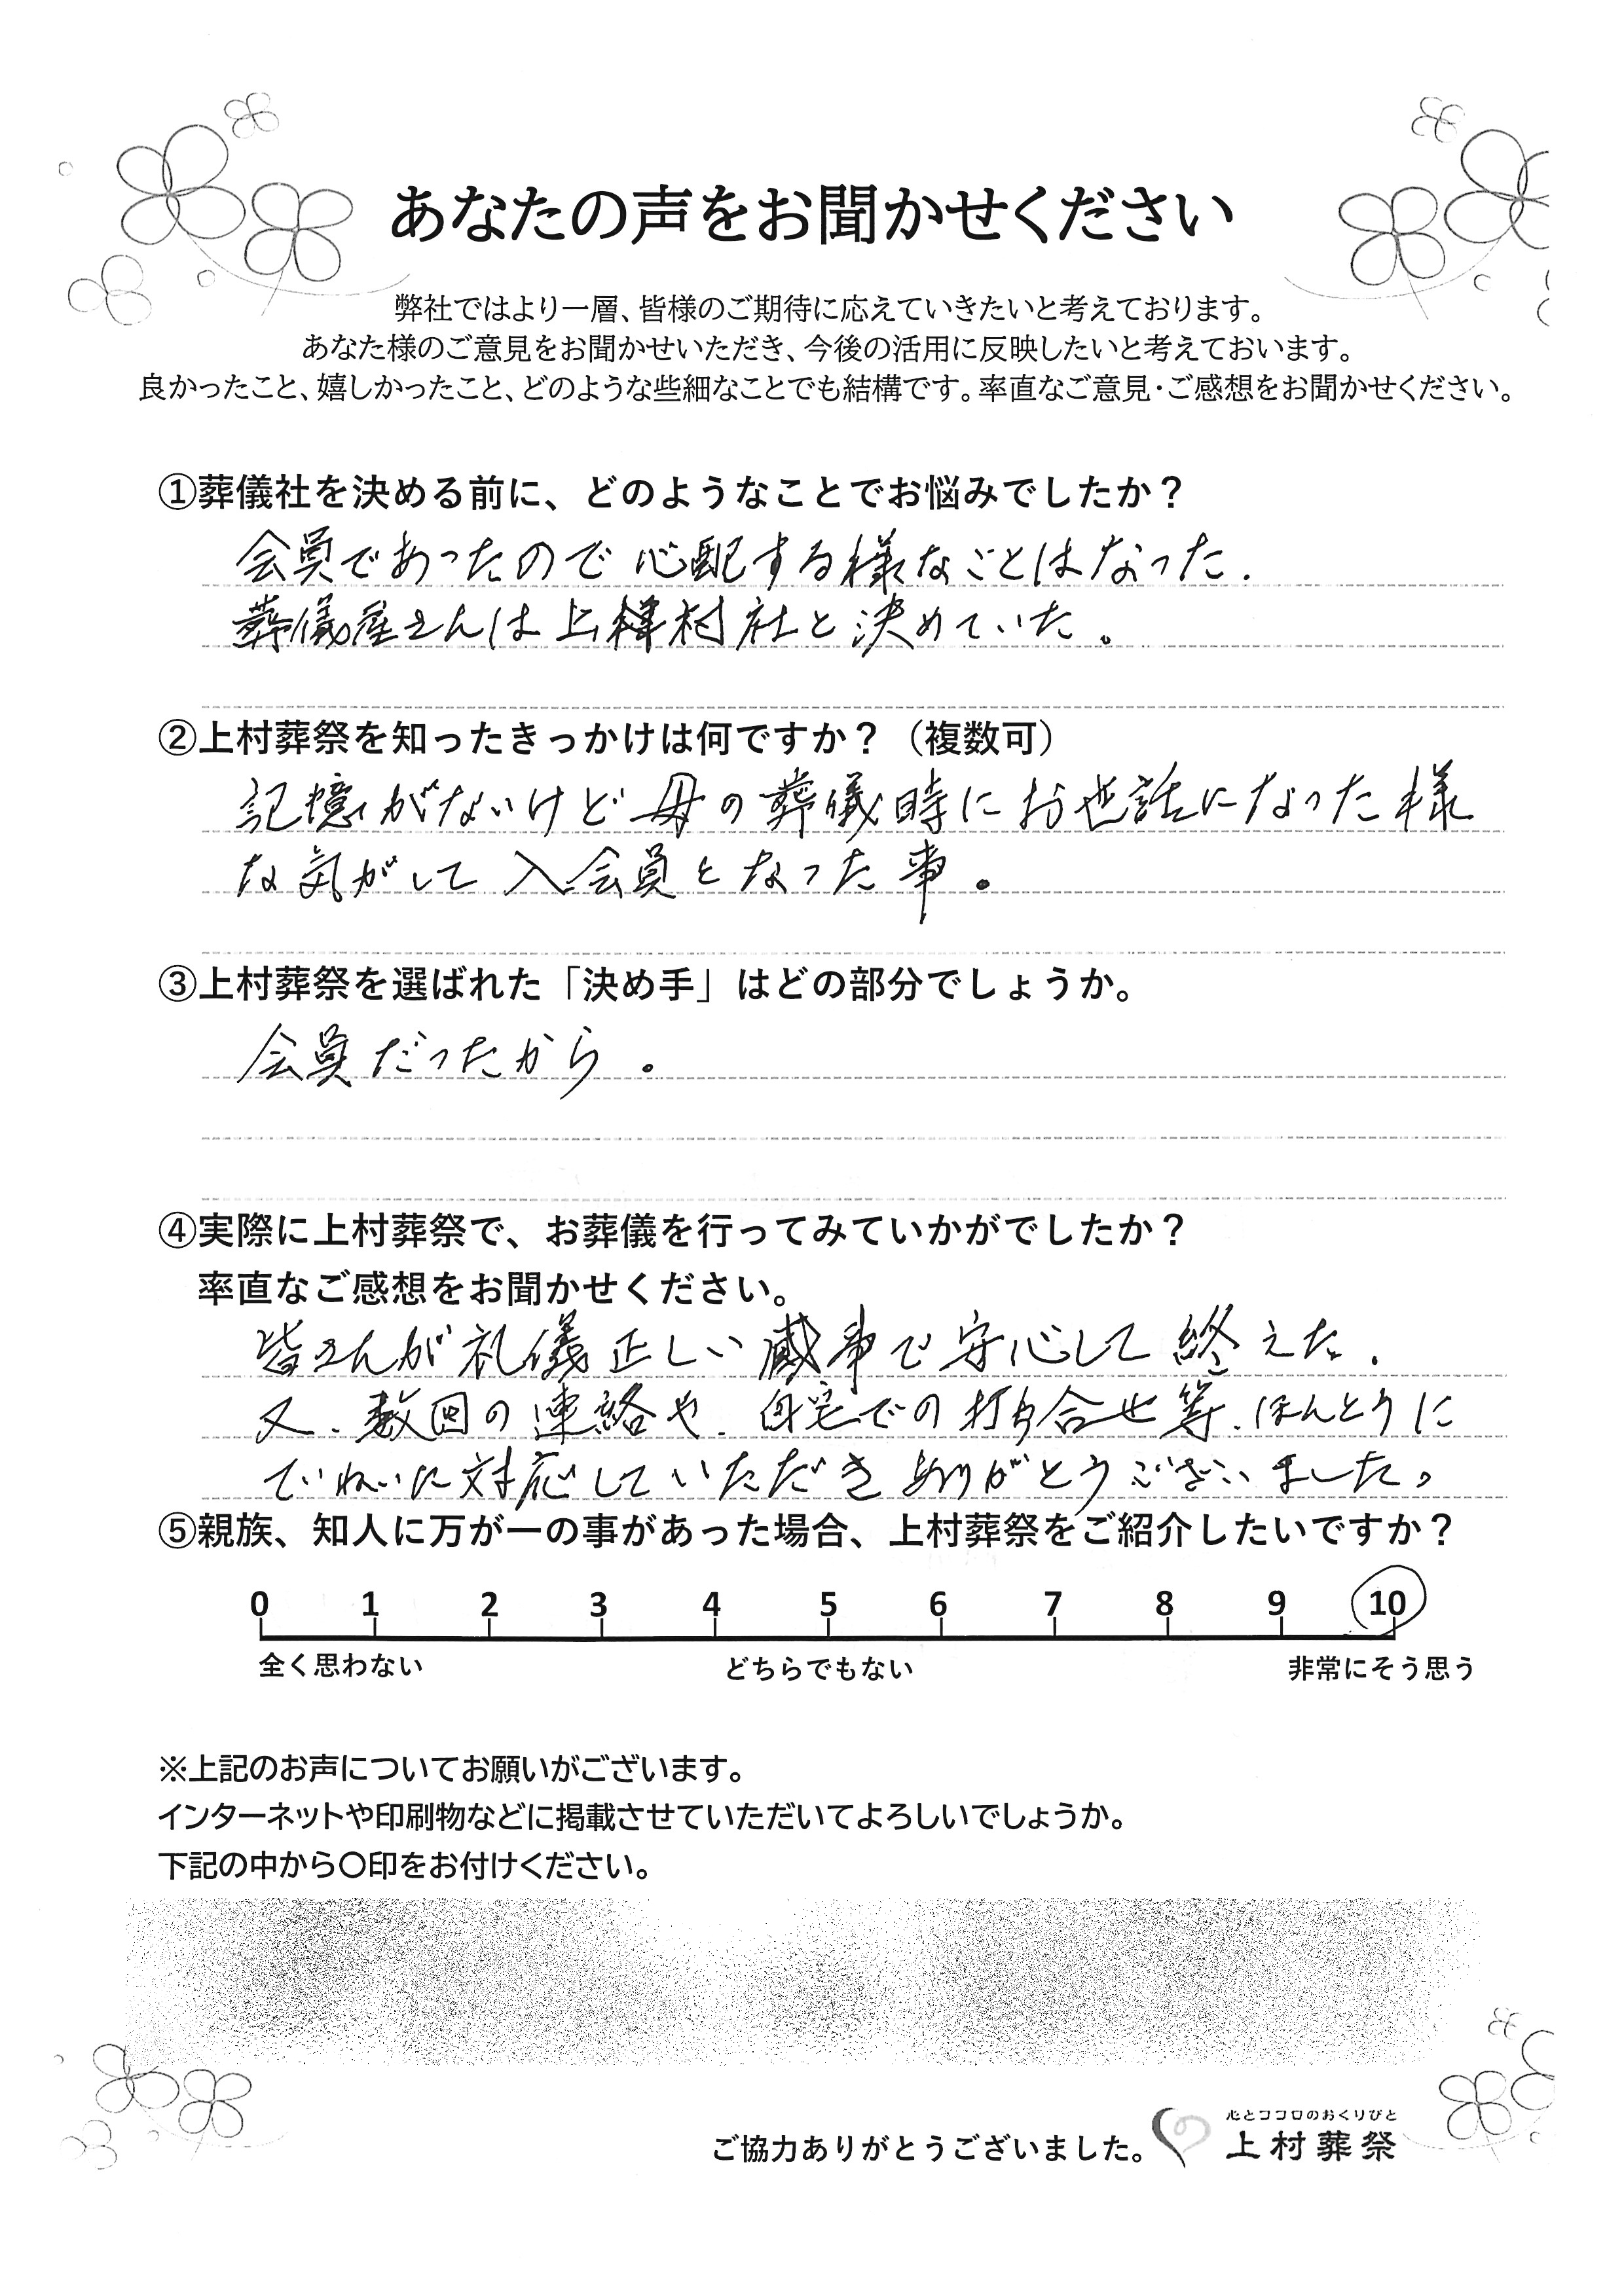 あなたの声をお聞かせください
弊社ではより一層、皆様のご期待に応えていきたいと考えております。
あなた様のご意見をお聞かせいただき、今後の活用に反映したいと考えておいます。
良かったこと、嬉しかったこと、どのような些細なことでも結構です。率直なご意見・ご感想をお聞かせください。
①葬儀社を決める前に、どのようなことでお悩みでしたか？
会員であったので心配する様なことはなった.
葬儀屋さんは上村社と決めていた。
②上村葬祭を知ったきっかけは何ですか？（複数可）
記憶がないけど母の葬儀時にお世話になった様
な気がして入会員となった事。
③上村葬祭を選ばれた「決め手」はどの部分でしょうか。
会員だったから。
④実際に上村葬祭で、お葬儀を行ってみていかがでしたか？
率直なご感想をお聞かせください。
皆さんが礼儀正しい事で安心して終えた.
又、数回の連絡や、自宅での打合せ等、ほんとうに
ていねいに対応していただきありがとうございました。
⑤親族、知人に万が一の事があった場合、上村葬祭をご紹介したいですか？
0 1 2 3 4 5 6 7 8 9 10
全く思わない どちらでもない 非常にそう思う
※上記のお声についてお願いがございます。
インターネットや印刷物などに掲載させていただいてよろしいでしょうか。
下記の中から〇印をお付けください。
心とココロのおくりびと
ご協力ありがとうございました。 上村葬祭